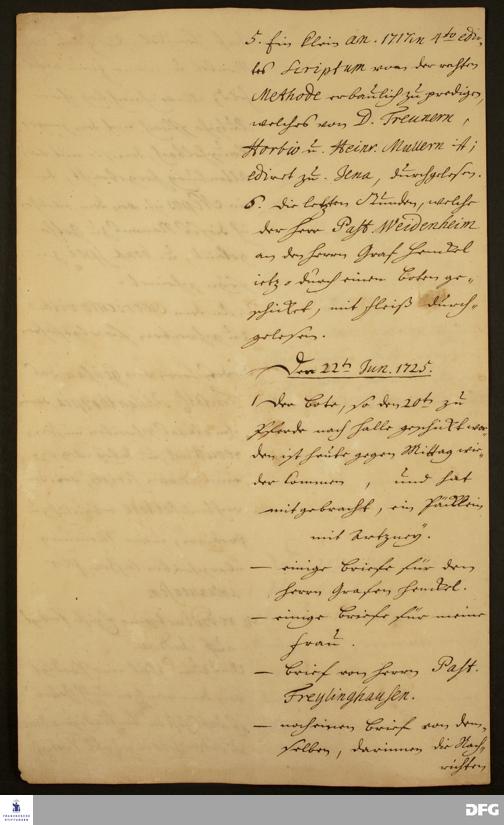 5. Ein klein an. 1717 in 4to edir-
tes Scriptum von der rechten
Methode erbaulich zu predigen,
welches von D. Treunern,
Horbio u. Heinr. Mullern ist
ediret zu Jena, durchgelesen.
6. Die letzten Stunden, welche
der Herr Past. Weidenheim
an den Herrn Graf Henckel
ietzo durch einen Boten ge-
schicket, mit Fleiß durch-
gelesen.
Den 22ten Jun. 1725.
1 Der Bote, so den 20ten zu
Pferde nach Halle geschickt wor-
den ist heute gegen Mittag wie-
der kommen, und hat
mitgebracht, ein Päcklein
mit Artzney.
— einige Briefe für den
Herrn Grafen Henckel.
— einige Briefe für meine
Frau.
— Brief von Herrn Past.
Freylinghausen.
— noch einen Brief von dem-
selben, darinnen die Nach-
richten
FRANCKESCHE
STIFTUNGEN
DFG